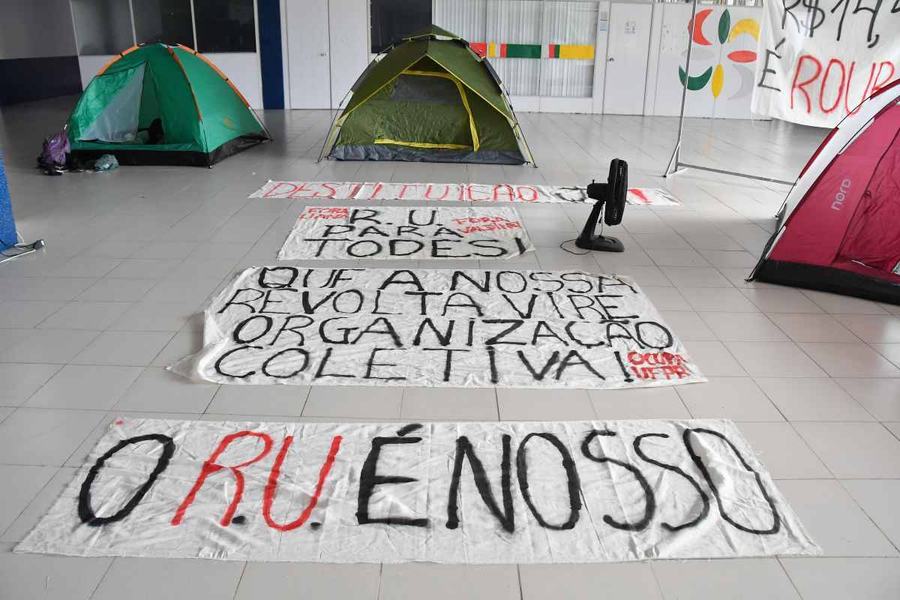 R$14,
É ROUB
nord
DESTITUIÇÃO !
FORA
R.U. FORA
PARA
TODES!
QUE A NOSSA
REVOLTA VIRE
ORGANIZAÇÃO
COLETIVA!
OCUPA
UFPR
O R.U. É NOSSO